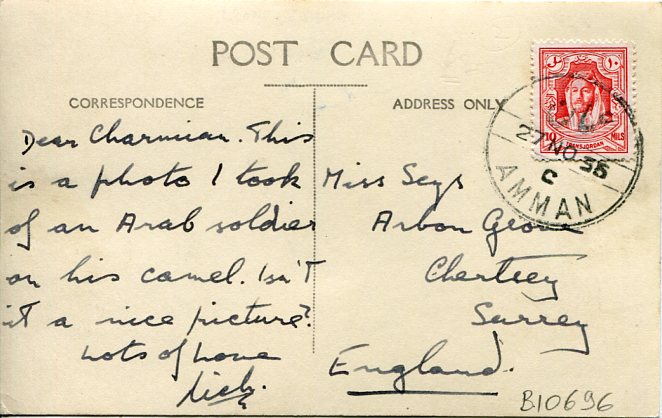 POST CARD
CORRESPONDENCE
ADDRESS ONLY
Dear Charmian. This
is a photo I took
of an Arab soldier
on his camel. Isn't
it a nice picture?
Lots of love
Miss Seys
Arbon
Chertsey
Surrey
England.
10 MILS
TRANSJORDAN
27 NO 35
C
AMMAN
B10696